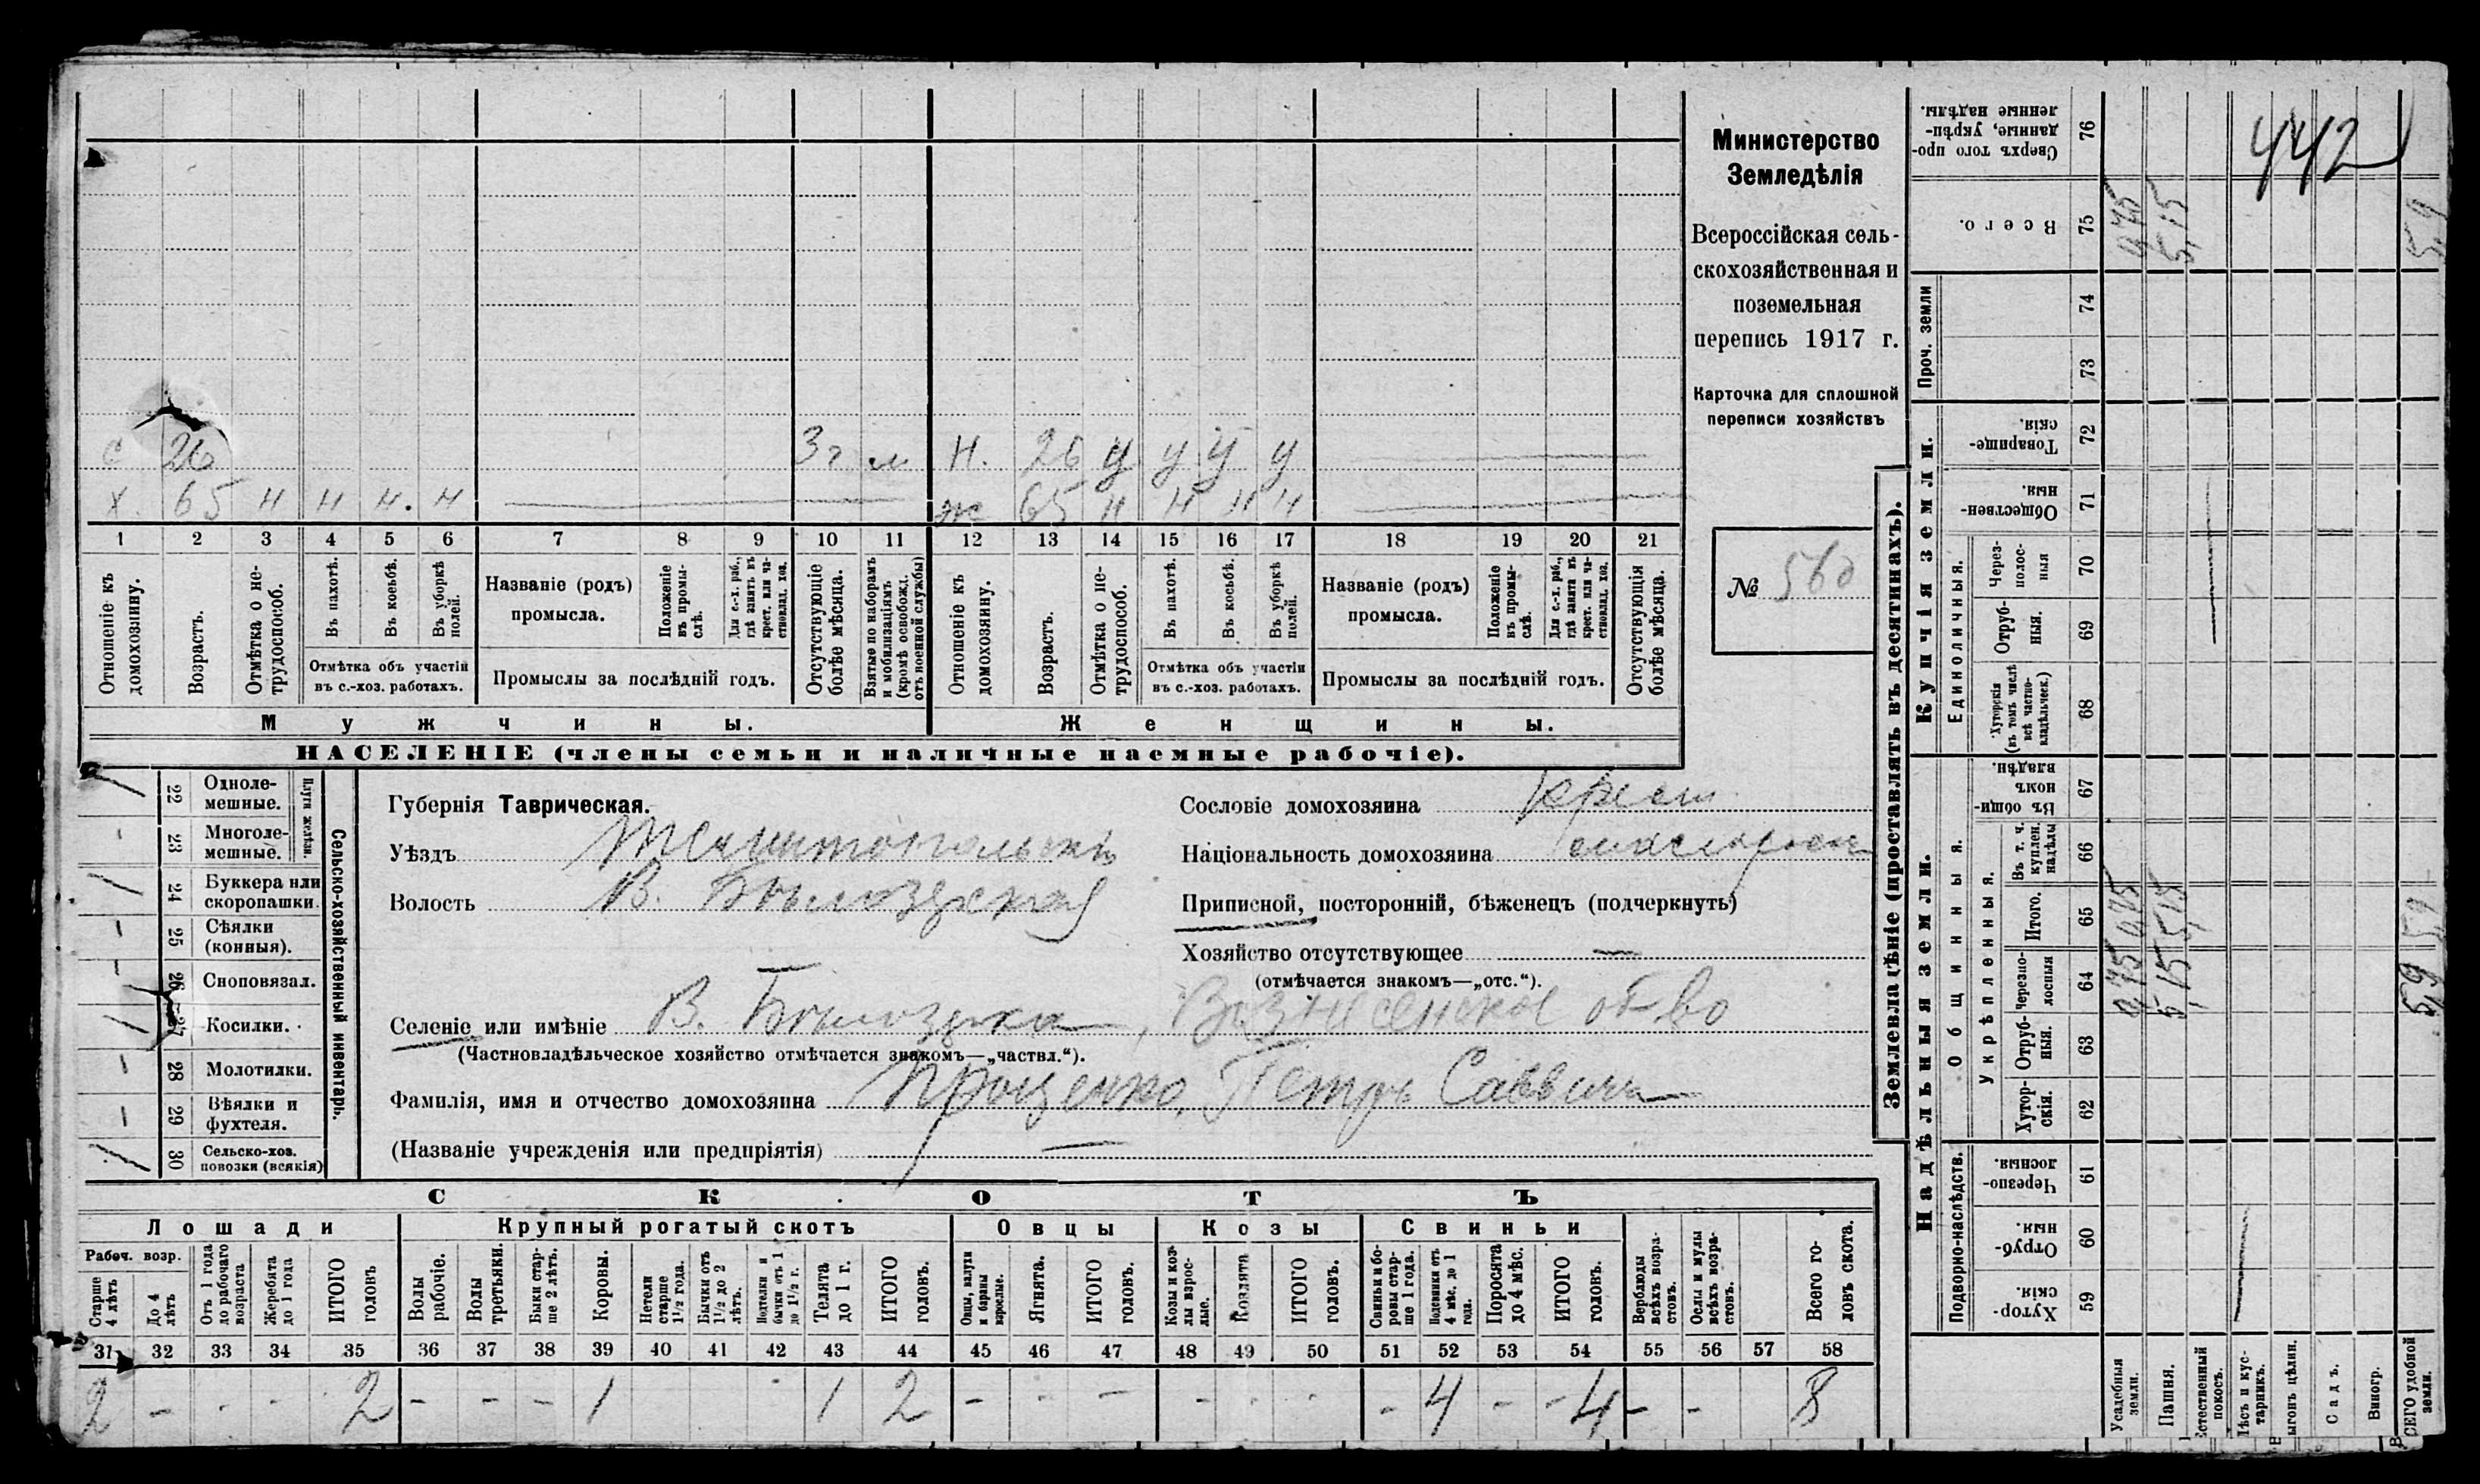 442
Министерство
Земледѣлія
Всероссійская сель-
скохозяйственная и
поземельная
перепись 1917 г.
Карточка для сплошной
переписи хозяйствъ
№ 560
с 26 3 г м н. 26 у у у у
х. 65 н н н. н ж 65 н н н н
1 2 3 4 5 6 7 8 9 10 11 12 13 14 15 16 17 18 19 20 21
Отношеніе къ домохозяину.
Возрастъ.
Отмѣтка о не-трудоспособ.
Въ пахотѣ.
Въ косьбѣ.
Въ уборкѣ полей.
Отмѣтка объ участіи
въ с.-хоз. работахъ.
Названіе (родъ)
промысла.
Положеніе въ промы-слѣ.
Для с.-х. раб., гдѣ занятъ въ крест. или ча-стновлад. хоз.
Промыслы за послѣдній годъ.
Отсутствующіе болѣе мѣсяца.
Взятые по наборамъ и мобилизаціямъ (кромѣ освобожд. отъ военной службы)
Отношеніе къ домохозяину.
Возрастъ.
Отмѣтка о не-трудоспособ.
Въ пахотѣ.
Въ косьбѣ.
Въ уборкѣ полей.
Отмѣтка объ участіи
въ с.-хоз. работахъ.
Названіе (родъ)
промысла.
Положеніе въ промы-слѣ.
Для с.-х. раб., гдѣ занятъ въ крест. или ча-стновлад. хоз.
Промыслы за послѣдній годъ.
Отсутствующія болѣе мѣсяца.
Мужчины.
Женщины.
НАСЕЛЕНІЕ (члены семьи и наличные наемные рабочіе).
22 Одноле-мешные.
23 Многоле-мешные.
Плуги желѣзн.
24 Буккера или скоропашки.
25 Сѣялки (конныя).
26 Сноповязал.
27 Косилки.
28 Молотилки.
29 Вѣялки и фухтеля.
30 Сельско-хоз. повозки (всякія)
Сельско-хозяйственный инвентарь.
Губернія Таврическая.
Уѣздъ Мелитопольскій
Волость В. Бѣлозерская
Селеніе или имѣніе В. Бѣлозерка, Вознесенское об-во
(Частновладѣльческое хозяйство отмѣчается знакомъ—„частвл.“).
Фамилія, имя и отчество домохозяина Проценко, Петръ Саввичъ
(Названіе учрежденія или предпріятія) —
Сословіе домохозяина крест.
Національность домохозяина малоросс
Приписной, посторонній, бѣженецъ (подчеркнуть)
Хозяйство отсутствующее —
(отмѣчается знакомъ—„отс.“).
СКОТЪ
Лошади
Рабоч. возр.
Старше 4 лѣтъ
До 4 лѣтъ
Отъ 1 года до рабочаго возраста
Жеребята до 1 года
ИТОГО головъ
Крупный рогатый скотъ
Волы рабочіе.
Волы третьяки.
Быки стар-ше 2 лѣтъ.
Коровы.
Нетели старше 1½ года.
Бычки отъ 1½ до 2 лѣтъ.
Подтелки и бычки отъ 1 до 1½ г.
Телята до 1 г.
ИТОГО головъ.
Овцы
Овцы, валухи и бараны взрослые.
Ягнята.
ИТОГО головъ.
Козы
Козы и коз-лы взрос-лые.
Козлята
ИТОГО головъ.
Свиньи
Свиньи и бо-ровы стар-ше 1 года.
Подсвинки отъ 4 мѣс. до 1 года.
Поросята до 4 мѣс.
ИТОГО головъ.
Верблюды всѣхъ возра-стовъ.
Ослы и мулы всѣхъ возра-стовъ.
Всего го-ловъ скота.
31 32 33 34 35 36 37 38 39 40 41 42 43 44 45 46 47 48 49 50 51 52 53 54 55 56 57 58
2 - - - 2 - - - 1 1 2 - - - - - - - 4 - 4 - - 8
Землевладѣніе (проставлять въ десятинахъ).
Купчія земли.
Надѣльныя земли.
Сверхъ того про-данные, укрѣп-ленные надѣлы. 76
Всего. 75 0,75 5,15 5,9
Проч. земли
74
73
Товарище-скія. 72
Обществен-ныя. 71
Единоличныя.
Через-полос-ныя 70
Отруб-ныя. 69
Хуторскія (въ томъ числѣ всѣ частно-владѣльческ.) 68
Общинныя.
Въ общи-номъ владѣн. 67
Укрѣпленныя.
Въ т. ч. куплен. надѣлы 66
Итого. 65 0,75 5,15 5,9
Черезпо-лосныя 64 0,75 5,15 5,9
Отруб-ныя. 63
Хутор-скія. 62
Подворно-наслѣдств.
Черезпо-лосныя. 61
Отруб-ныя. 60
Хутор-скія. 59
Усадебныя земли.
Пашня.
Естественный покосъ.
Лѣсъ и кус-тарникъ.
Выгонъ цѣлин.
Садъ.
Виногр.
ВСЕГО удобной земли.